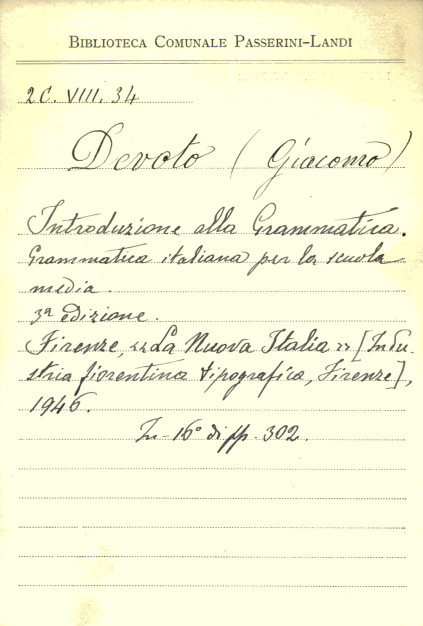 BIBLIOTECA COMUNALE PASSERINI-LANDI
2C. VIII. 34
Devoto (Giacomo)
Introduzione alla Grammatica.
Grammatica italiana per la scuola
media.
3ª edizione.
Firenze, «La Nuova Italia» [Indu-
stria fiorentina tipografica, Firenze],
1946.
In-16° di pp. 302.